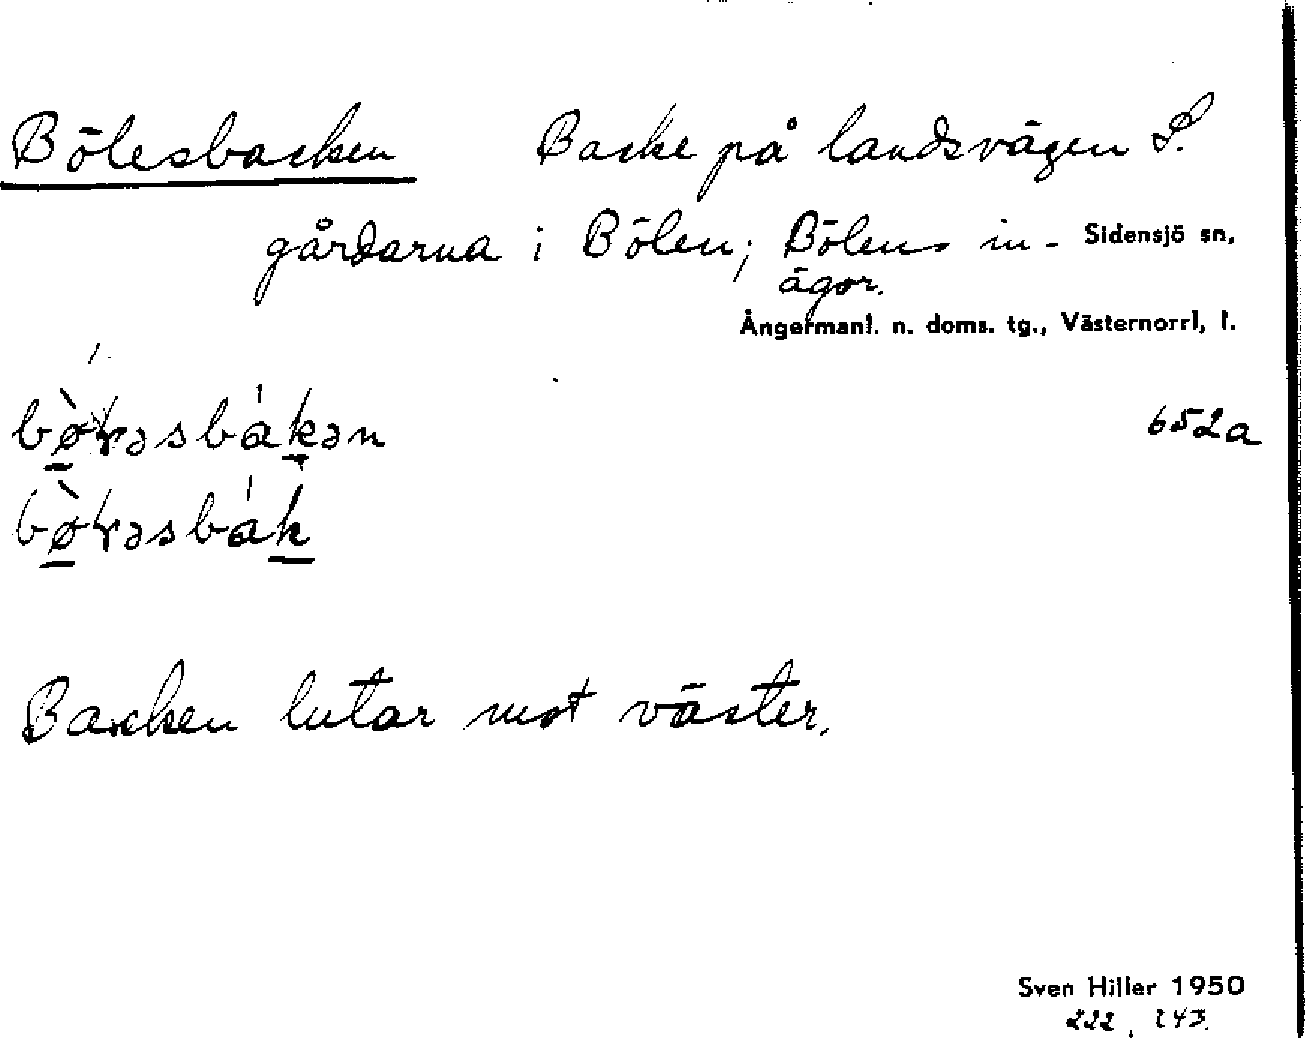 Bölesbacken Backe på landsvägen S.
gårdarna i Bölen; Bölens in- Sidensjö sn,
ägor.
Ångermanl. n. doms. tg., Västernorrl, l.
652a
Backen lutar mot väster.
Sven Hiller 1950
222, 243.